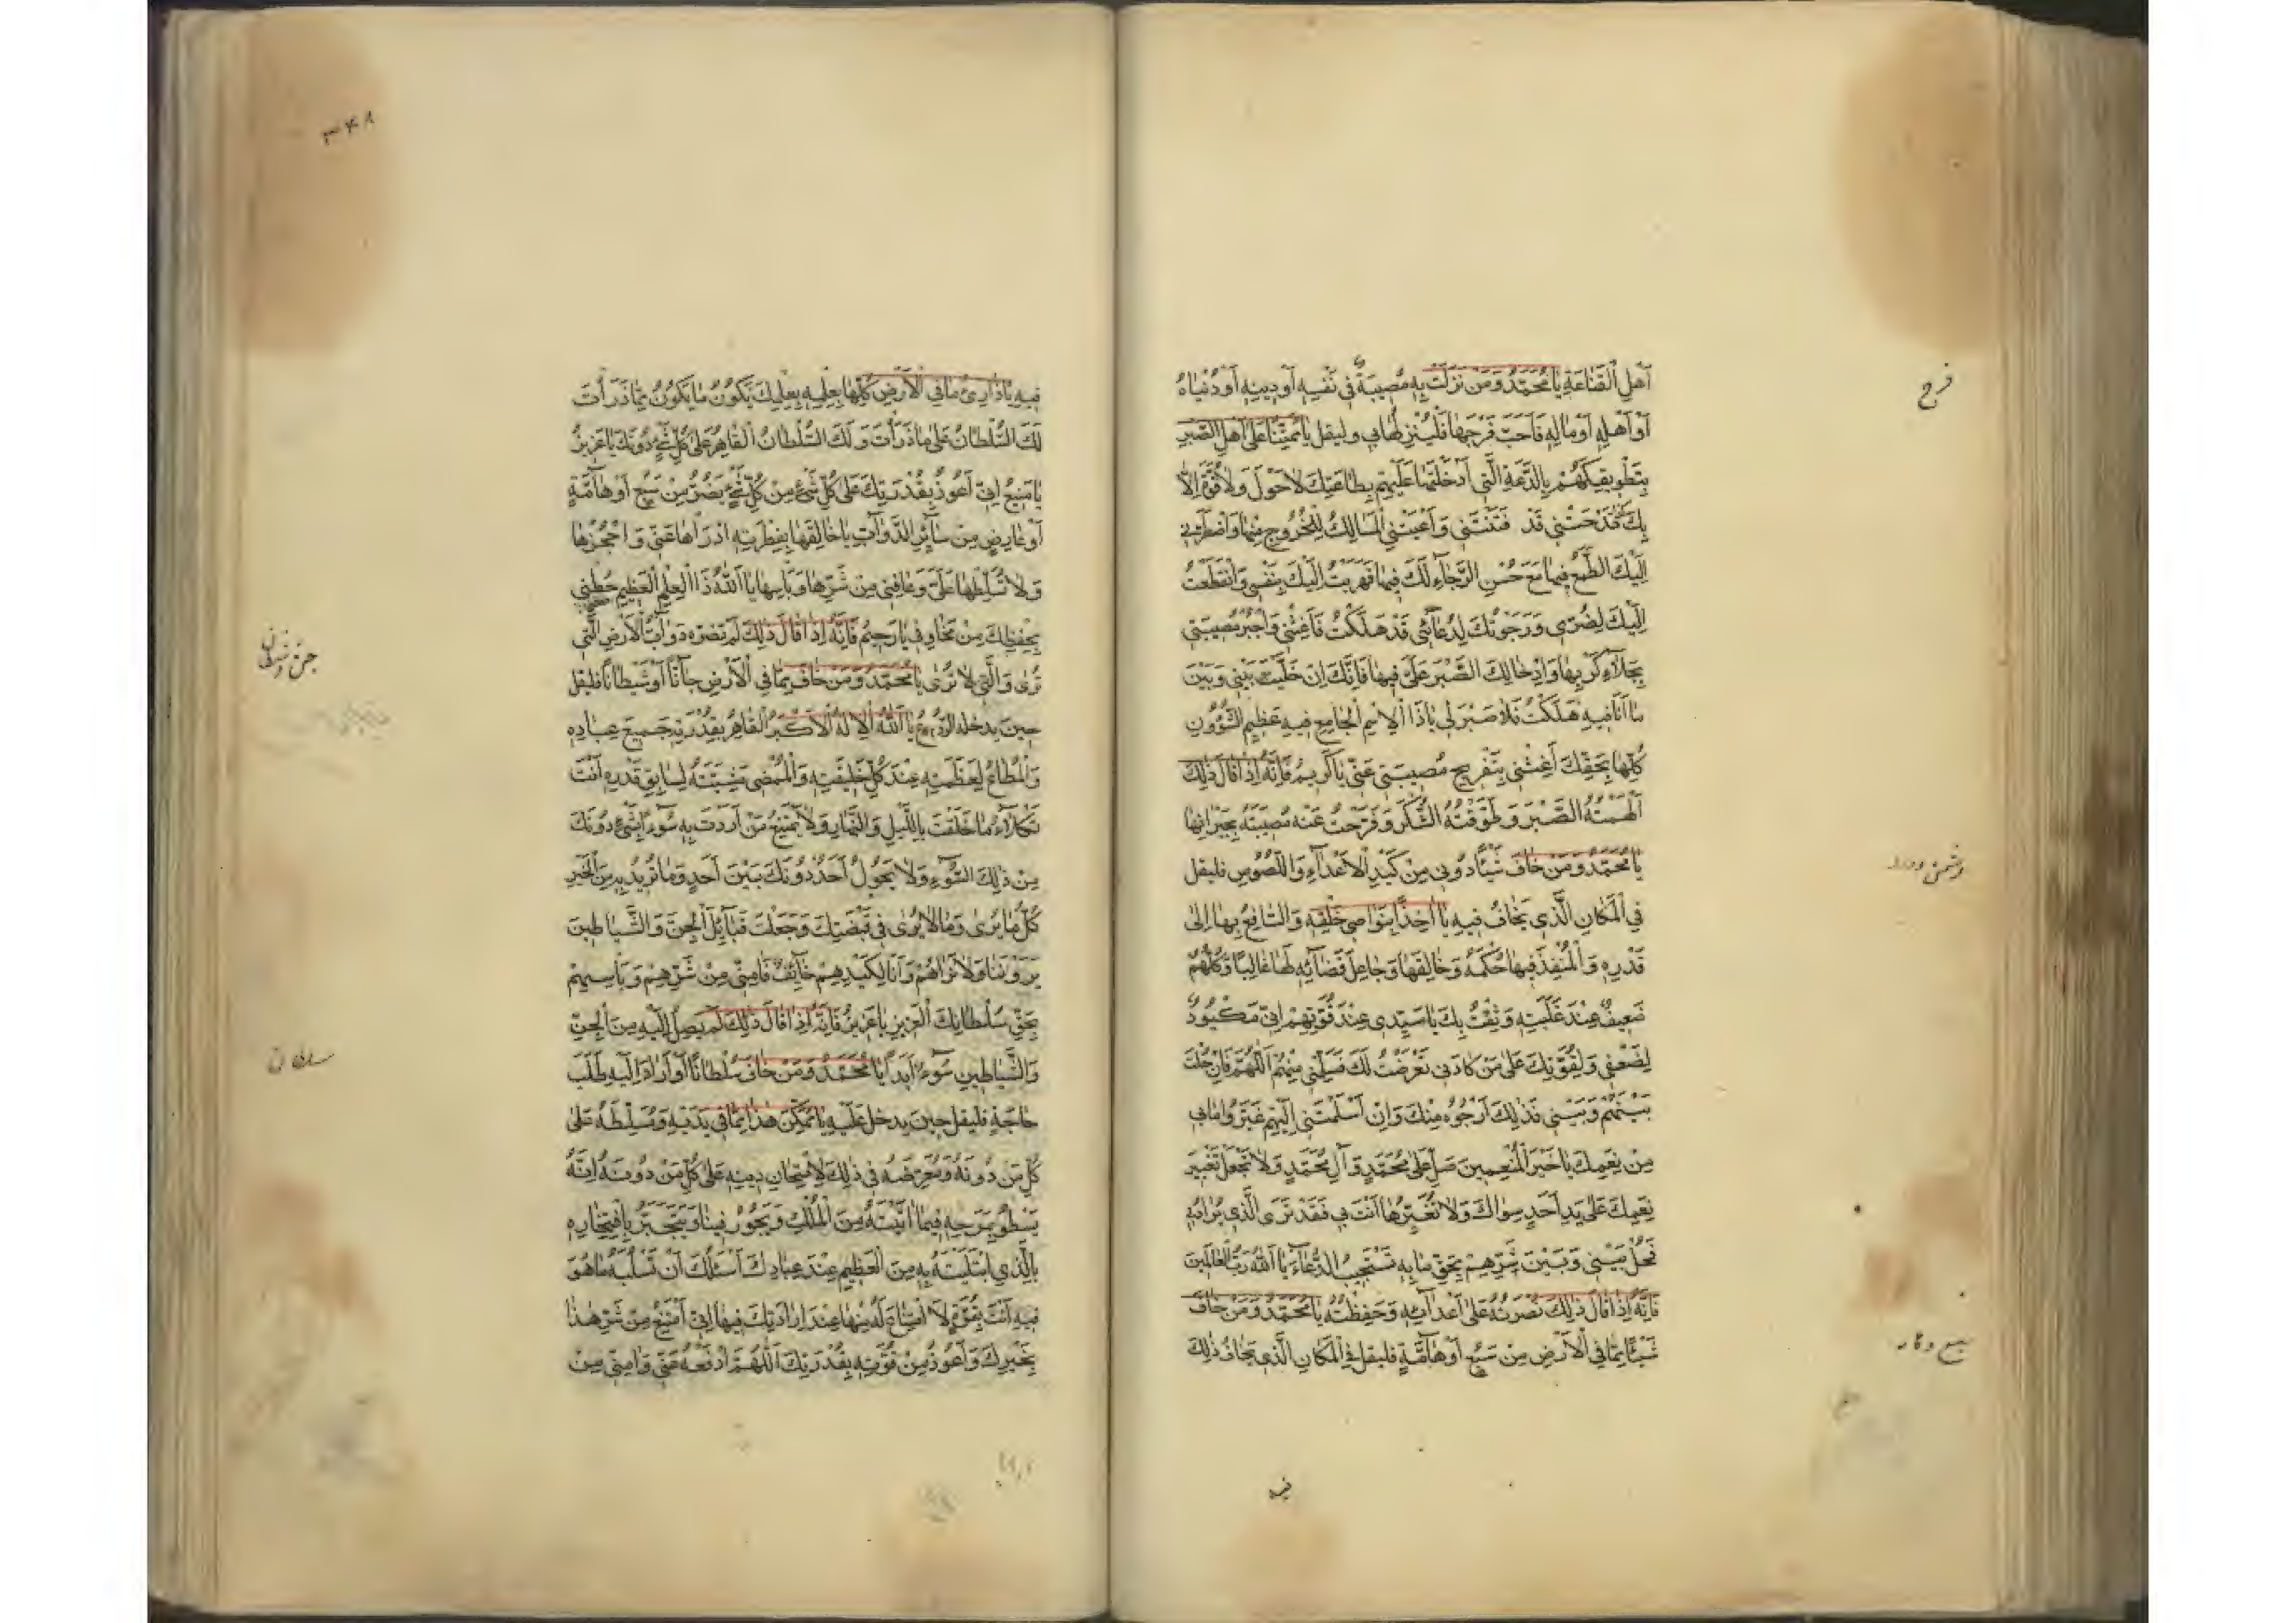 فرج
اَهْلِ الْقَنَاعَةِ يَا مُحَمَّدُ وَمَنْ نَزَلَتْ بِهِ مُصِيبَةٌ فِي نَفْسِهِ أَوْ دِينِهِ أَوْ دُنْيَاهُ
أَوْ أَهْلِهِ أَوْ مَالِهِ فَأَحَبَّ فَرَجَهَا فَلْيُنْزِلْهَا بِي وليقل يَا مُمْتَنًّا عَلَى أَهْلِ الصَّبْرِ
بِتَطْوِيقِكَهُمْ بِالدَّعَةِ الَّتِي أَدْخَلْتَهَا عَلَيْهِمْ بِطَاعَتِكَ لَا حَوْلَ وَلَا قُوَّةَ إِلَّا
بِكَ قَدْ فَدَحَتْنِي قَدْ فَتَنَتْنِي وَأَعْيَتْنِي الْمَسَالِكُ لِلْخُرُوجِ مِنْهَا وَاضْطَرَّنِي
إِلَيْكَ الطَّمَعُ فِيهَا مَعَ حُسْنِ الرَّجَاءِ لَكَ فِيهَا فَهَرَبْتُ إِلَيْكَ بِنَفْسِي وَانْقَطَعْتُ
إِلَيْكَ لِضُرِّي وَرَجَوْتُكَ لِدُعَائِي قَدْ هَلَكْتُ فَأَغِثْنِي وَاجْبُرْ مُصِيبَتِي
بِجَلَاءِ كَرْبِهَا وَإِدْخَالِكَ الصَّبْرَ عَلَيَّ فِيهَا فَإِنَّكَ إِنْ خَلَّيْتَ بَيْنِي وَبَيْنَ
مَا أَنَا فِيهِ هَلَكْتُ فَلَا صَبْرَ لِي يَا ذَا الْاِسْمِ الْجَامِعِ فِيهِ عَظِيمُ الشُّؤُونِ
كُلِّهَا بِحَقِّكَ أَغِثْنِي بِتَفْرِيجِ مُصِيبَتِي عَنِّي يَا كَرِيمُ فَإِنَّهُ إِذَا قَالَ ذَلِكَ
أَلْهَمْتُهُ الصَّبْرَ وَطَوَّقْتُهُ الشُّكْرَ وَفَرَّجْتُ عَنْهُ مُصِيبَتَهُ بِجُبْرَانِهَا
يَا مُحَمَّدُ وَمَنْ خَافَ شَيْئًا دُونِي مِنْ كَيْدِ الْأَعْدَاءِ وَاللُّصُوصِ فليقل
دشمن ودزد
فِي الْمَكَانِ الَّذِي يَخَافُ فِيهِ يَا آخِذًا بِنَوَاصِي خَلْقِهِ وَالسَّافِعَ بِهَا إِلَى
قَدْرِهِ وَالْمُنْفِذَ فِيهَا حُكْمَهُ وَخَالِقَهَا وَجَاعِلَ قَضَائِهِ لَهَا غَالِبًا وَكُلُّهُمْ
ضَعِيفٌ عِنْدَ غَلَبَتِهِ وَثِقْتُ بِكَ يَا سَيِّدِي عِنْدَ قُوَّتِهِمْ إِنِّي مَكْيُودٌ
لِضَعْفِي وَلِقُوَّتِكَ عَلَى مَنْ كَادَنِي تَعَرَّضْتُ لَكَ فَسَلِّمْنِي مِنْهُمْ اَللَّهُمَّ فَإِنْ حُلْتَ
بَيْنَهُمْ وَبَيْنِي فَذَلِكَ أَرْجُوهُ مِنْكَ وَإِنْ أَسْلَمْتَنِي إِلَيْهِمْ غَيَّرُوا مَا بِي
مِنْ نِعَمِكَ يَا خَيْرَ الْمُنْعِمِينَ صَلِّ عَلَى مُحَمَّدٍ وَآلِ مُحَمَّدٍ وَلَا تَجْعَلْ تَغْيِيرَ
نِعَمِكَ عَلَى يَدِ أَحَدٍ سِوَاكَ وَلَا تُغَيِّرْهَا أَنْتَ بِي فَقَدْ تَرَى الَّذِي يُرَادُ بِي
فَحُلْ بَيْنِي وَبَيْنَ شَرِّهِمْ بِحَقِّ مَا بِهِ تَسْتَجِيبُ الدُّعَاءَ يَا اَللَّهُ رَبَّ الْعَالَمِينَ
فَإِنَّهُ إِذَا قَالَ ذَلِكَ نَصَرْتُهُ عَلَى أَعْدَائِهِ وَحَفِظْتُهُ يَا مُحَمَّدُ وَمَنْ خَافَ
شَيْئًا مِمَّا فِي الْأَرْضِ مِنْ سَبُعٍ أَوْ هَامَّةٍ فليقل فِي الْمَكَانِ الَّذِي يَخَافُ ذَلِكَ
فيه
٣٤٨
فِيهِ يَا ذَارِئَ مَا فِي الْأَرْضِ كُلِّهَا بِعِلْمِهِ بِعِلْمِكَ يَكُونُ مَا يَكُونُ مِمَّا ذَرَأْتَ
لَكَ السُّلْطَانُ عَلَى مَا ذَرَأْتَ وَلَكَ السُّلْطَانُ الْقَاهِرُ عَلَى كُلِّ شَيْءٍ دُونَكَ يَا عَزِيزُ
يَا مَنِيعُ إِنِّي أَعُوذُ بِقُدْرَتِكَ عَلَى كُلِّ شَيْءٍ مِنْ كُلِّ شَيْءٍ يَضُرُّ مِنْ سَبُعٍ أَوْ هَامَّةٍ
أَوْ عَارِضٍ مِنْ سَائِرِ الدَّوَابِّ يَا خَالِقَهَا بِفِطْرَتِهِ ادْرَأْهَا عَنِّي وَاحْجُزْهَا
وَلَا تُسَلِّطْهَا عَلَيَّ وَعَافِنِي مِنْ شَرِّهَا وَبَأْسِهَا يَا اَللَّهُ ذَا الْعِلْمِ الْعَظِيمِ حُطْنِي
بِحِفْظِكَ مِنْ مَخَاوِفِي يَا رَحِيمُ فَإِنَّهُ إِذَا قَالَ ذَلِكَ لَمْ تَضُرَّهُ دَوَابُّ الْأَرْضِ الَّتِي
تُرَى وَالَّتِي لَا تُرَى يَا مُحَمَّدُ وَمَنْ خَافَ مِمَّا فِي الْأَرْضِ جَانًّا أَوْ شَيْطَانًا فليقل
حِينَ يدخله الرَّوْعُ يَا اَللَّهُ الْإِلَهُ الْأَكْبَرُ الْقَاهِرُ بِقُدْرَتِهِ جَمِيعَ عِبَادِهِ
وَالْمُطَاعُ لِعَظَمَتِهِ عِنْدَ كُلِّ خَلِيقَتِهِ وَالْمُمْضِي مَشِيَّتَهُ لِسَابِقِ قَدْرِهِ أَنْتَ
تَكْلَأُ مَا خَلَقْتَ بِاللَّيْلِ وَالنَّهَارِ وَلَا يَمْتَنِعُ مَنْ أَرَدْتَ بِهِ سُوءًا بِشَيْءٍ دُونَكَ
مِنْ ذَلِكَ السُّوءِ وَلَا يَحُولُ أَحَدٌ دُونَكَ بَيْنَ أَحَدٍ وَمَا تُرِيدُ بِهِ مِنَ الْخَيْرِ
كُلُّ مَا يُرَى وَمَا لَا يُرَى فِي قَبْضَتِكَ وَجَعَلْتَ قَبَائِلَ الْجِنِّ وَالشَّيَاطِينَ
يَرَوْنَنَا وَلَا نَرَاهُمْ وَأَنَا لِكَيْدِهِمْ خَائِفٌ فَآمِنِّي مِنْ شَرِّهِمْ وَبَأْسِهِمْ
بِحَقِّ سُلْطَانِكَ الْعَزِيزِ يَا عَزِيزُ فَإِنَّهُ إِذَا قَالَ ذَلِكَ لَمْ يَصِلْ إِلَيْهِ مِنَ الْجِنِّ
وَالشَّيَاطِينِ سُوءٌ أَبَدًا يَا مُحَمَّدُ وَمَنْ خَافَ سُلْطَانًا أَوْ أَرَادَ إِلَيْهِ طَلَبَ
سلطان
حَاجَةٍ فليقل حِينَ يدخل عَلَيْهِ يَا مُمَكِّنَ هَذَا مِمَّا فِي يَدَيْهِ وَمُسَلِّطَهُ عَلَى
كُلِّ مَنْ دُونَهُ وَمُعَرِّضَهُ فِي ذَلِكَ لِامْتِحَانِ دِينِهِ عَلَى كُلِّ مَنْ دُونَهُ إِنَّهُ
يَسْطُو بِمَرَحِهِ فِيمَا آتَيْتَهُ مِنَ الْمُلْكِ وَيَجُورُ فِينَا وَيَتَجَبَّرُ بِافْتِخَارِهِ
بِالَّذِي ابْتَلَيْتَهُ بِهِ مِنَ الْعَظِيمِ عِنْدَ عِبَادِكَ أَسْئَلُكَ أَنْ تَسْلُبَهُ مَا هُوَ
فِيهِ أَنْتَ بِقُوَّةٍ لَا امْتِنَاعَ لَهُ مِنْهَا عِنْدَ إِرَادَتِكَ فِيهَا إِنِّي أَمْتَنِعُ مِنْ شَرِّ هَذَا
بِخَيْرِكَ وَأَعُوذُ مِنْ قُوَّتِهِ بِقُدْرَتِكَ اَللَّهُمَّ ادْفَعْهُ عَنِّي وَآمِنِّي مِنْ